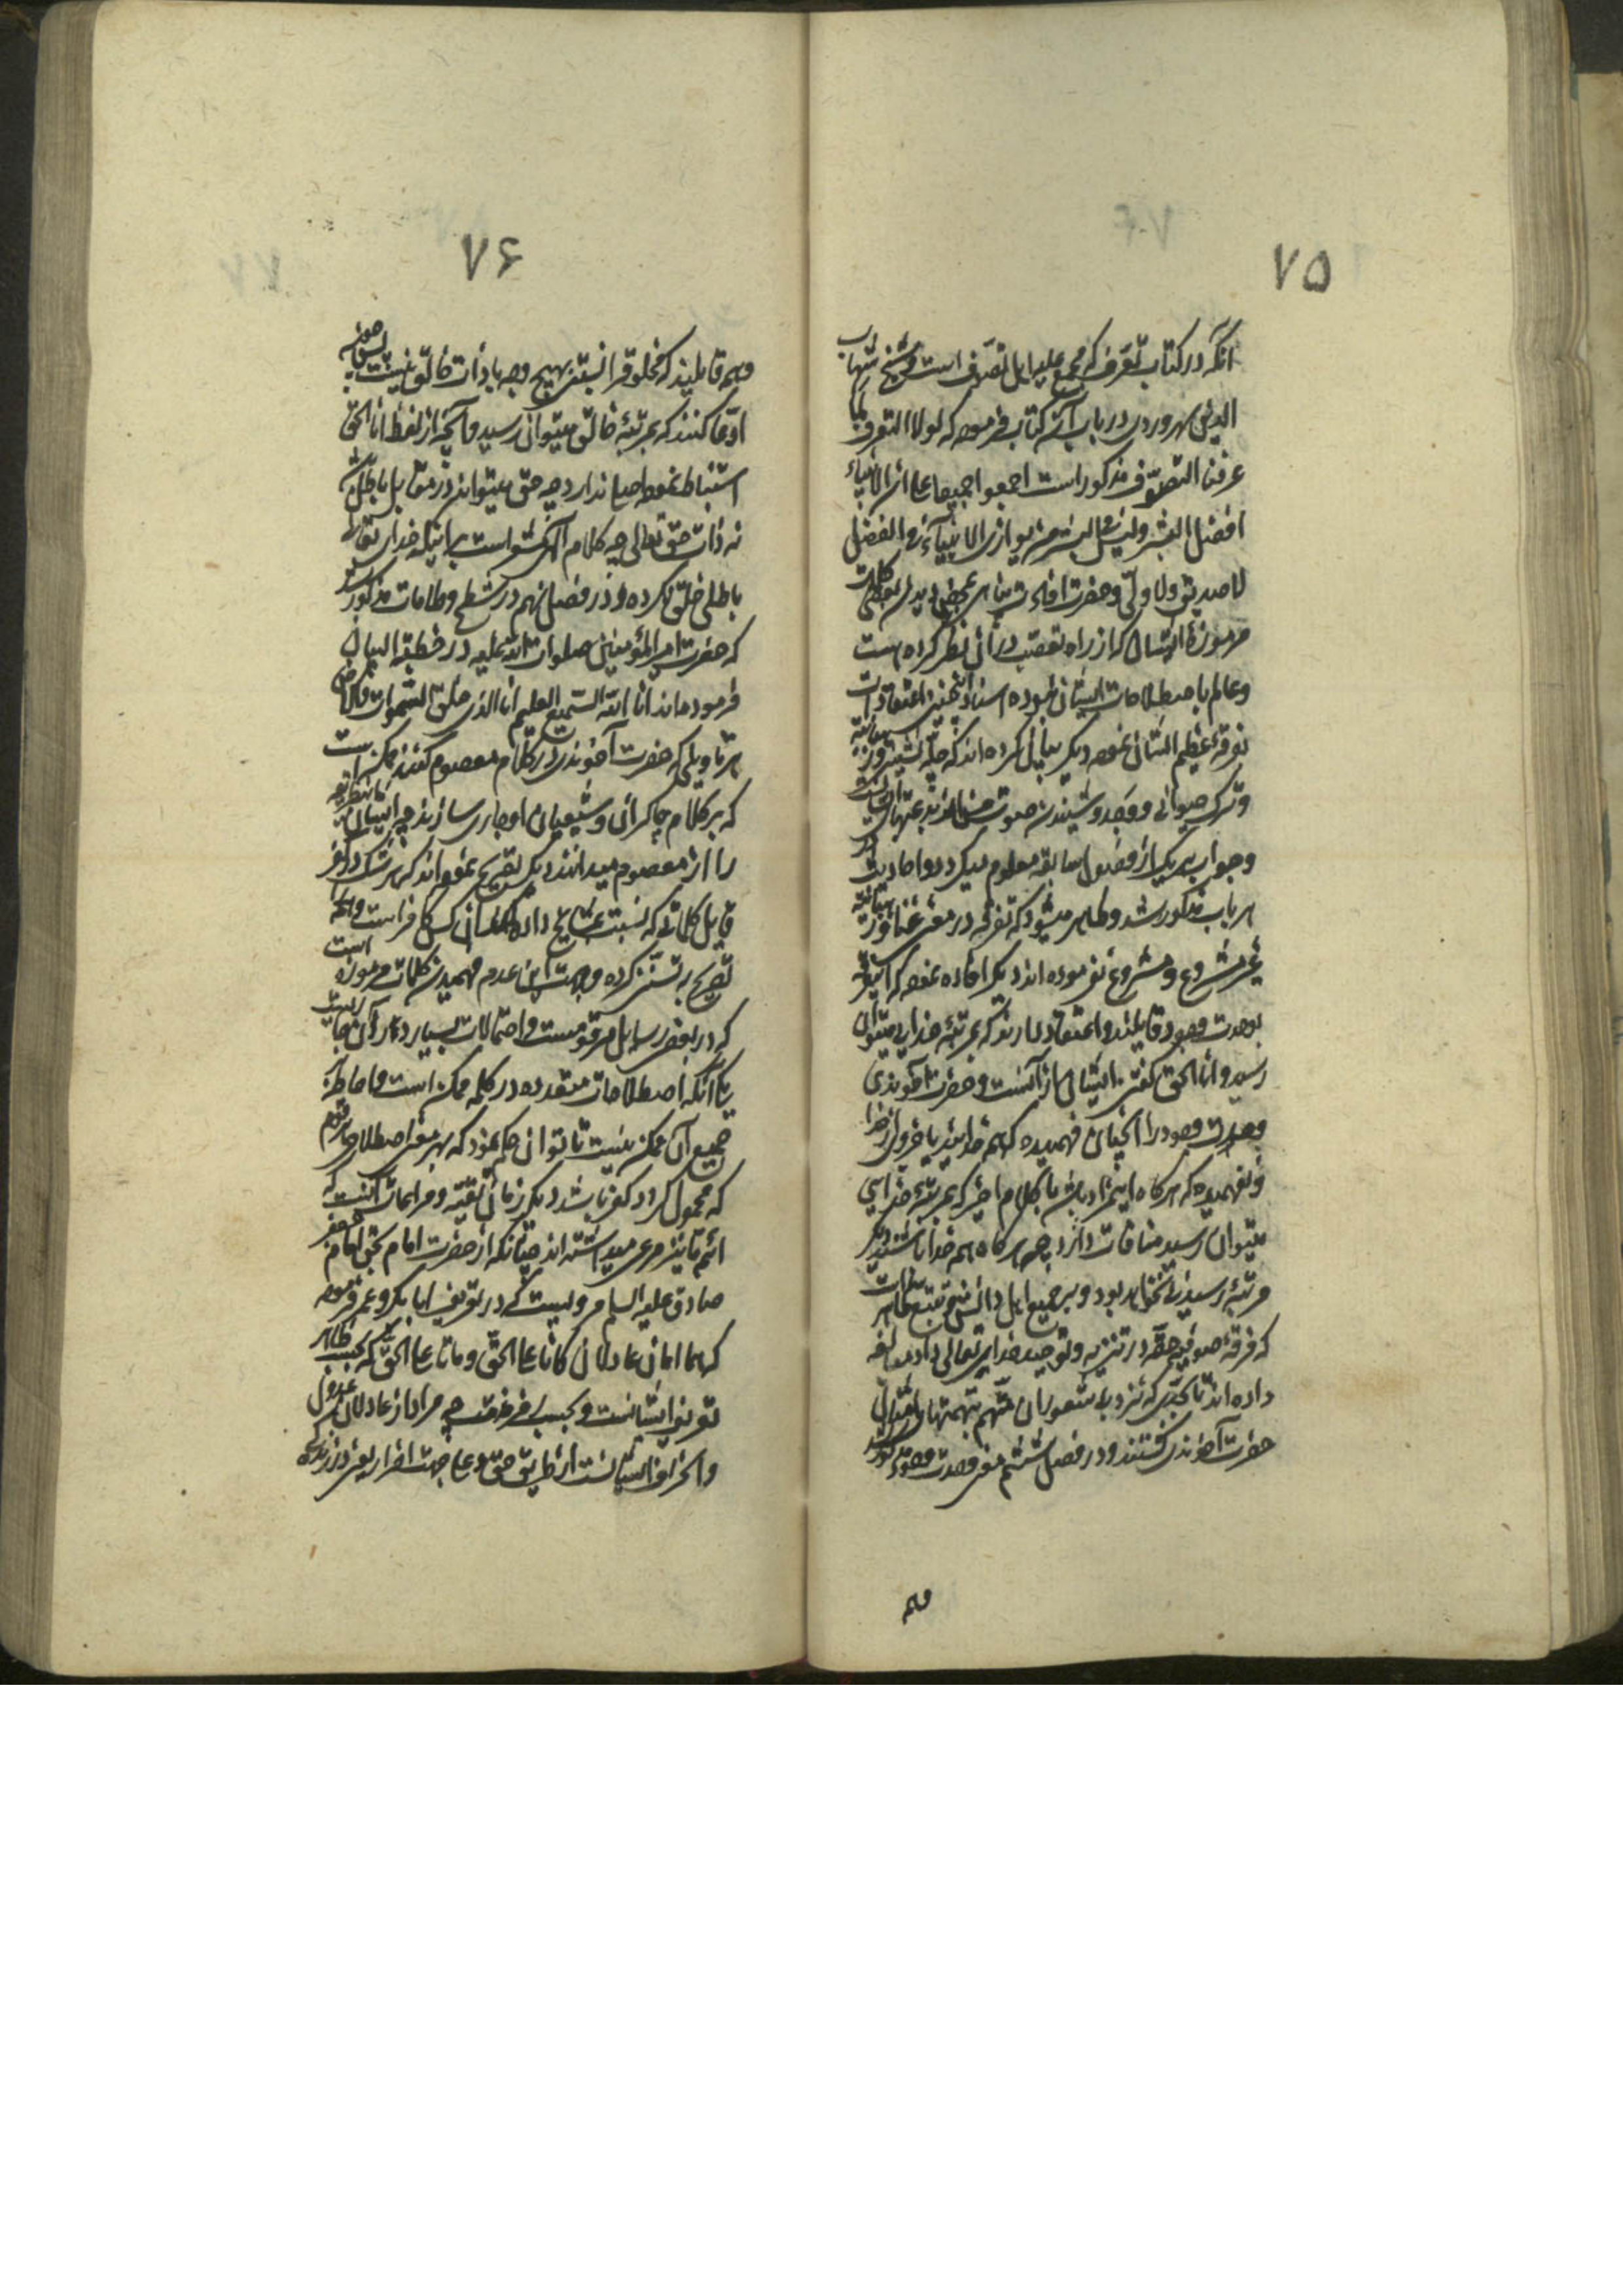 ۷۵
آنکه در کتاب تعرف که مجمع علیه اهل تصوف است و شیخ شهاب
الدین سهروردی در باب آن کتاب فرموده که لولا التعرف لما
عرفنا التصوف مذکور است اجمعوا جمیعا علی ان الانبیاء
افضل البشر ولیس فی البشر من یوازی الانبیاء فی الفضل
لا صدیق ولا ولی و حضرت افادت پناهی بمحض دیدن بعضی کلمات
مرموزهٔ ایشان که از راه تعصب در آن نظر کرده است
و عالم باصطلاحات ایشان نبوده اسناد اینچنین اعتقادات
بفرقهٔ عظیم الشان نموده دیگر بیان کرده‌اند که چله نشینی و رهبانیه
و ترک حیوانی و وجد و شنیدن صوت حسن از بدعتهای ایشان است
و جواب هر یک از فصول سابقه معلوم میگردد و احادیث در
هر باب مذکور شد و ظاهر میشود که تفرقه در معنی غنا و رهبانیه
غیر مشروع و مشروع نفرموده‌اند دیگر افاده نموده که اینفرقه
بوحدت وجود قایلند و اعتقاد دارند که بمرتبهٔ خدایی میتوان
رسید و انا الحق گفتن ایشان از آنست و حضرت آخوندی
وحدت وجود را آنچنان فهمیده که همه خدایند یا جزوی از خدا
و نفهمیده که هرگاه اینمراد باشد با کلام اخیر که بمرتبهٔ خدایی
میتوان رسید منافات دارد چه هرگاه همه خدا باشند دیگر
مرتبهٔ رسیدنی نخواهد بود و بر جمیع اهل دانش منتبع ظاهر است
که فرقهٔ صوفیهٔ حقه در تنزیه و توحید خدای تعالی داد مبالغه
داده‌اند تا بحدی که نزد بی شعوران متهم بتهمتهای امثال
حضرت آخوندی گشتند و در فصل ششم معنی وحدت وجود مذکور شد
وهم
۷۶
وهم قایلند که مخلوق را نسبتی بهیچ وجه با ذات خالق نیست پس چون
ادعا کنند که بمرتبهٔ خالق میتوان رسید و آنچه از لفظ انا الحق
استنباط نموده اصلی ندارد چه حق میتواند در مقابل باطل باشد
نه ذات حق تعالی چه کلام الهی مشعر است بر اینکه خدای تعالی
باطلی خلق نکرده و در فصل نهم در شطح و طامات مذکور شد
که حضرت امیر المؤمنین صلوات الله علیه در خطبة البیان
فرموده‌اند انا الله السمیع العلیم انا الذی خلق السموات والارض
هر تاویلی که حضرت آخوندی در کلام معصوم کنند ممکن است
که بر کلام چاکران و شیعیان او جاری سازند چه ایشان
را از معصوم میدانند دیگر تصریح نموده‌اند که هر که شک در کفر
قایل کلماتی که نسبت بمشایخ داده‌اند کند آن کس کافر است و
تصریح بر تسنن کرده وجهت این عدم فهمیدن کلمات مرموزه است
که در بعضی رسایل مرقومست و احتمالات بسیار دارد
با آنکه اصطلاحات متعدده در کلمه ممکن است و احاطهٔ
جمیع آن ممکن نیست تا توان حکم نمود که بهر معنی اصطلاحی مرقوم
که محمول گردد کفر باشد دیگر زمان تقیه و مراعات آنست که
ائمه ما نیز مرعی میداشته‌اند چنانکه از حضرت امام بحق امام جعفر
صادق علیه السلام مرویست که در تعریف ابا بکر و عمر فرموده
که هما امامان عادلان کانا علی الحق و ماتا علی الحق که بحسب ظاهر
تعریف ایشانست و بحسب معنی مذمت چه مراد از عادلان عدول
و انحراف ایشانست از طریق حق و علی جهت اضرار یعنی در زندگی